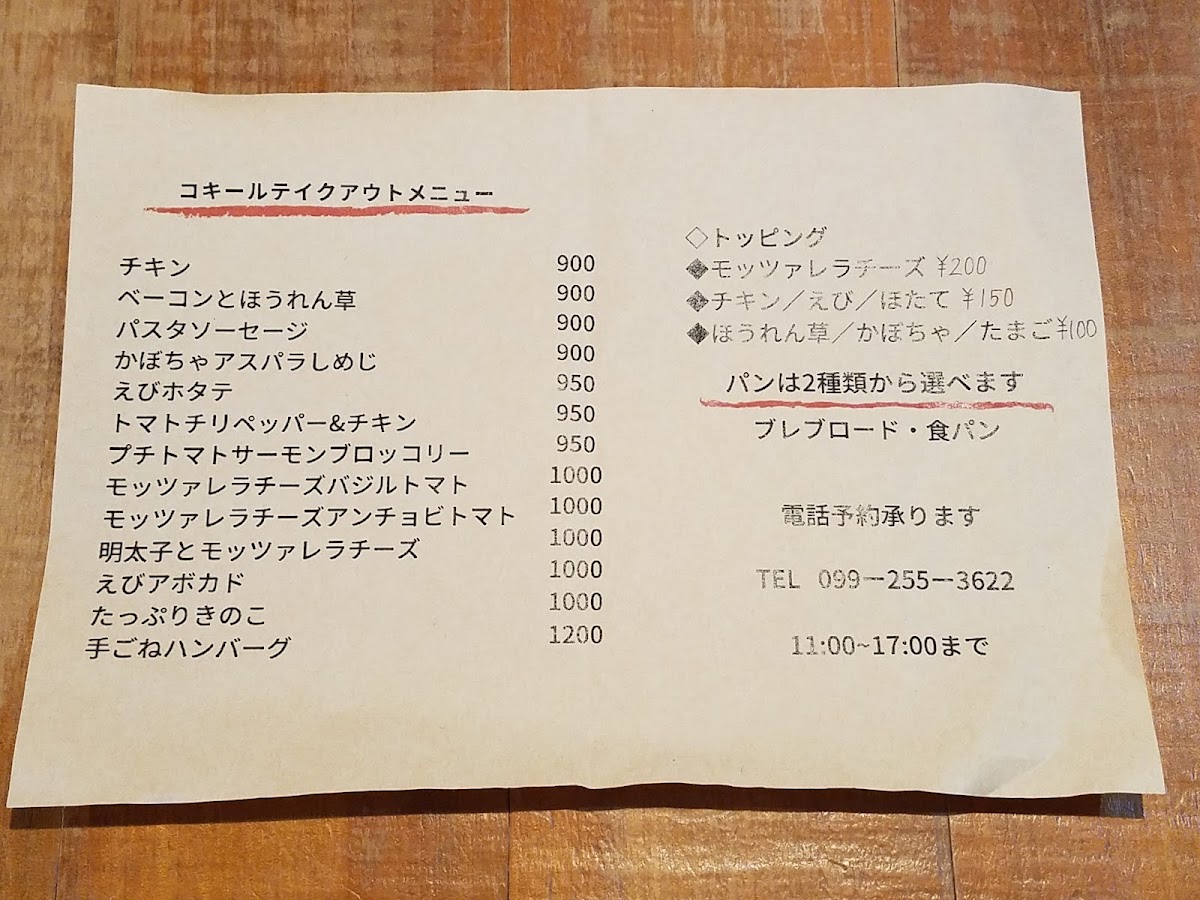 コキールテイクアウトメニュー
チキン 900
ベーコンとほうれん草 900
パスタソーセージ 900
かぼちゃアスパラしめじ 900
えびホタテ 950
トマトチリペッパー&チキン 950
プチトマトサーモンブロッコリー 950
モッツァレラチーズバジルトマト 1000
モッツァレラチーズアンチョビトマト 1000
明太子とモッツァレラチーズ 1000
えびアボカド 1000
たっぷりきのこ 1000
手ごねハンバーグ 1200
◇トッピング
◆モッツァレラチーズ ¥200
◆チキン／えび／ほたて ¥150
◆ほうれん草／かぼちゃ／たまご¥100
パンは2種類から選べます
ブレブロード・食パン
電話予約承ります
TEL 099ー255ー3622
11:00~17:00まで